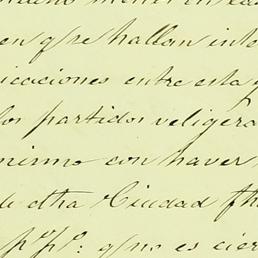 en qᵉ se hallan inte
icaciones entre esta
los partidos veligera
mismo con haver
de dha Ciudad fh
pᵒ pᵒ: qᵉ no es cier